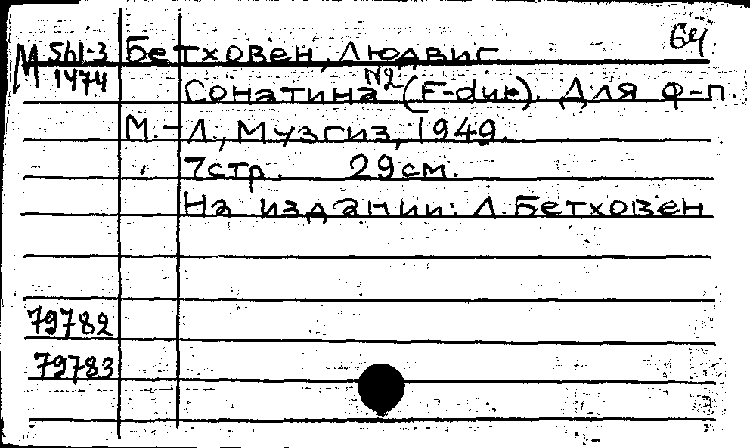 64
М 561-3 Бетховен, Людвиг
1474
Сонатина №2 (F-dur). Для ф-п.
М.-Л., Музгиз, 1949.
7стр. 29см.
На издании: Л. Бетховен
79782
79783